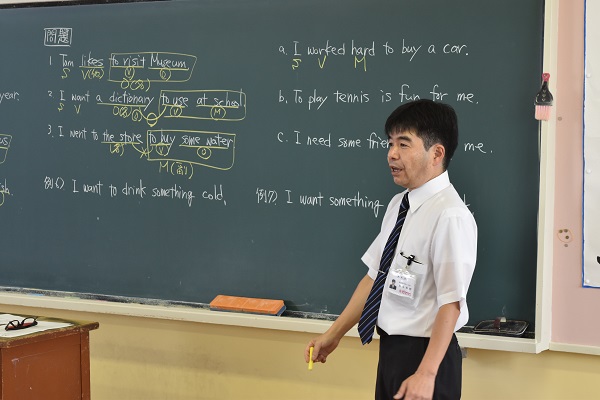 問題
1. Tom likes to visit Museum.
S V(他) V O
O(名)
2. I want a dictionary to use at school.
S V O(名) V M
3. I went to the store to buy some water
V O
M(副)
例6) I want to drink something cold.
a. I worked hard to buy a car.
S V M
b. To play tennis is fun for me.
c. I need some me.
例7) I want something
year.